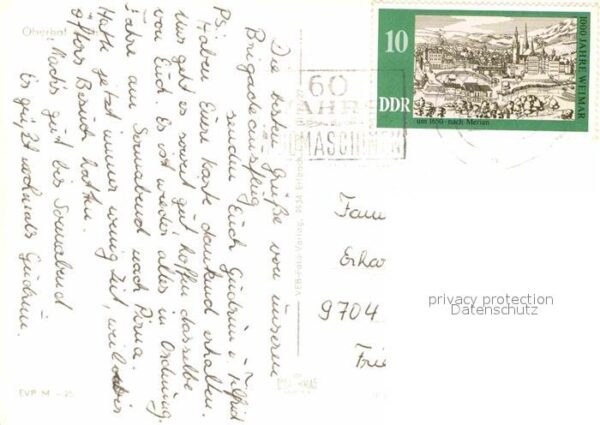 Oberhof
Die besten Grüße von unserem
Brigadeausflug
senden Euch Gudrun u. Wilfried
PS. Haben Eure Karte dankend erhalten.
Uns geht es soweit gut hoffen dasselbe
von Euch. Es ist wieder alles in Ordnung.
Fahre am Sonnabend nach Pirna.
Hatte jetzt immer wenig Zeit, weil wir
öfters Besuch hatten.
Machs gut bis Sonnabend
Es grüßt nochmals Gudrun.
EVP M -25
VEB Bild-Verlag,
60
JAHRE
MASCHINEN
10
DDR
1000 JAHRE WEIMAR
um 1650 · nach Merian
Fam
Erha
9704
Frie
privacy protection
Datenschutz